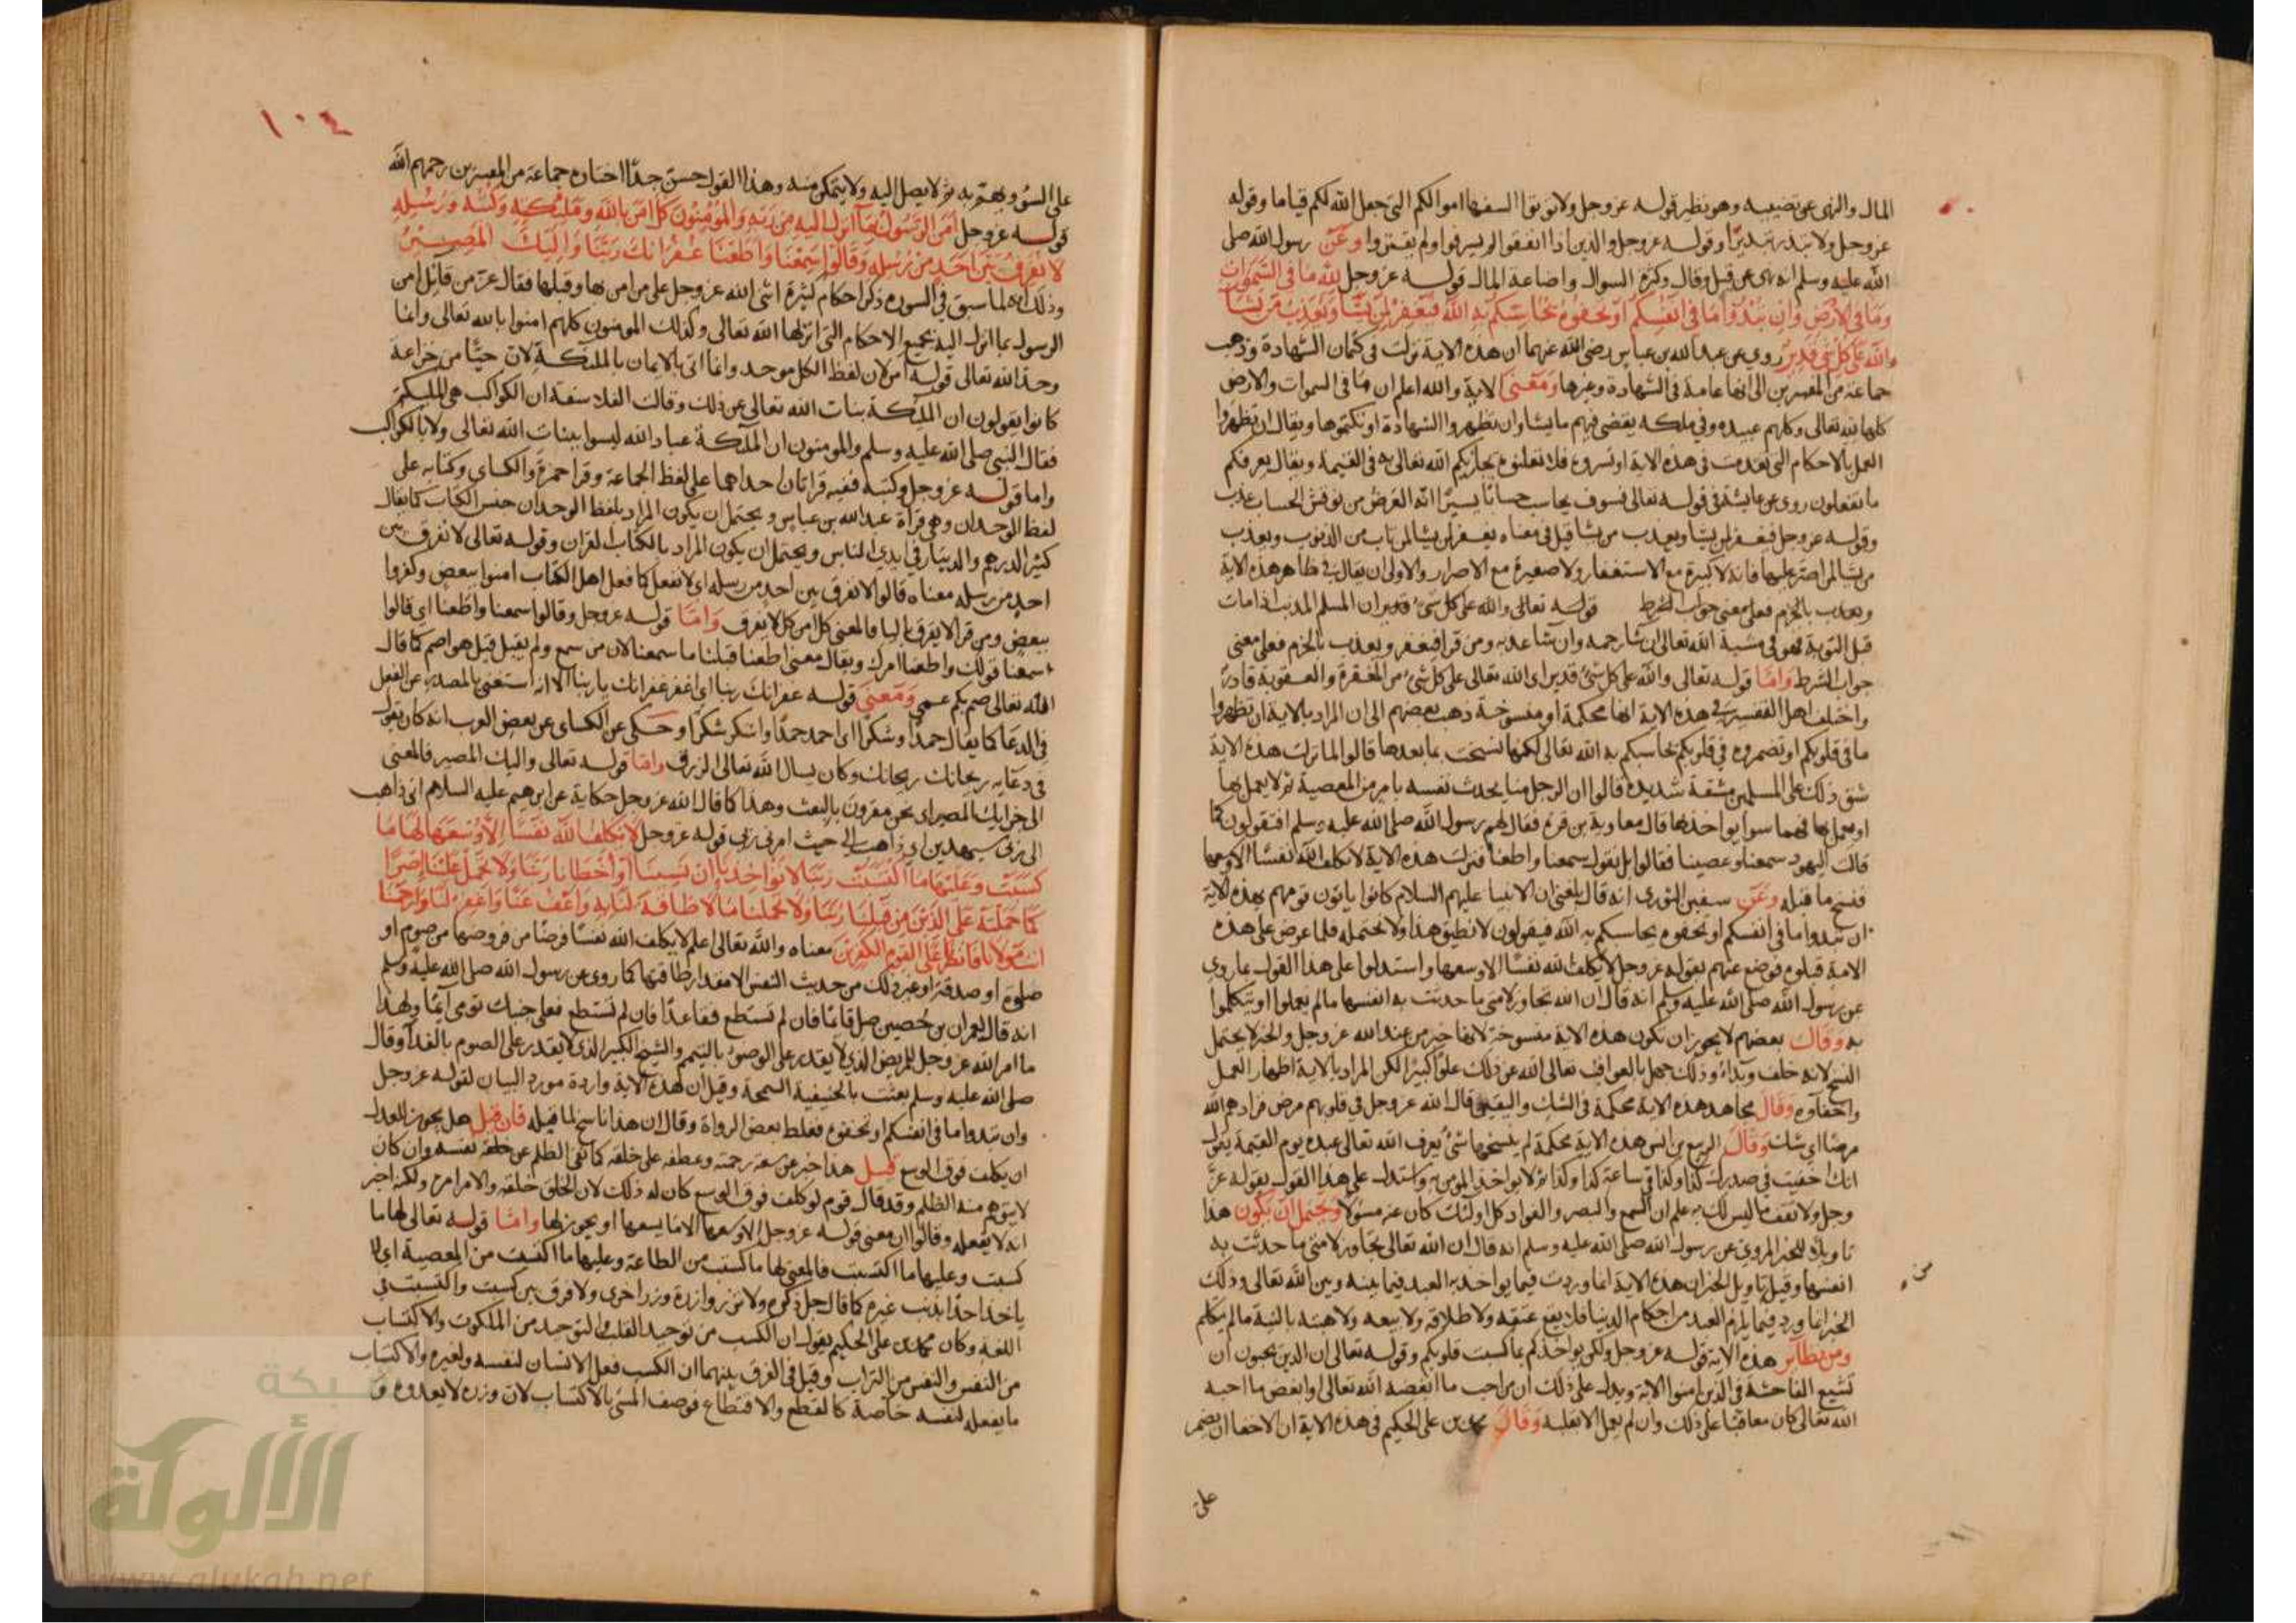 المال والنهى عن تضييعه وهو نظير قوله عز وجل ولا توتوا السفها اموالكم التى جعل الله لكم قياما وقوله
عز وجل ولا تبذر تبذيرا وقوله عز وجل والذين اذا انفقوا لم يسرفوا ولم يقتروا وعن رسول الله صلى
الله عليه وسلم انه نهى عن قيل وقال وكثرة السوال واضاعة المال قوله عز وجل لله ما فى السموات
وما فى الارض وان تبدوا ما فى انفسكم او تخفوه يحاسبكم به الله فيغفر لمن يشا ويعذب من يشا
والله على كل شى قدير روي عن عبد الله بن عباس رضى الله عنهما ان هذه الاية نزلت فى كتمان الشهادة وذهب
جماعة من المفسرين الى انها عامة فى الشهادة وغيرها ومعنى الاية والله اعلم ان ما فى السموات والارض
كلها لله تعالى وكلهم عبيده وفى ملكه يقضى فيهم ما يشا وان تظهروا الشهادة او تكتموها ويقال ان تظهروا
العمل بالاحكام التى تقدمت فى هذه الاية او تسروه فلا تعلنوه يجازيكم الله تعالى به فى القيمة ويقال يعرفكم
ما تفعلون روى عن عائشة فى قوله تعالى فسوف يحاسب حسابا يسيرا انه العرض من نوقش الحساب عذب
وقوله عز وجل فيغفر لمن يشا ويعذب من يشا قيل فى معناه يغفر لمن يشا لمن تاب من الذنوب ويعذب
من يشا لمن اصر عليها فانه لا كبيرة مع الاستغفار ولا صغيرة مع الاصرار والاولى ان يقال فى ظاهر هذه الاية
ويعذب بالجزم فعلى معنى جواب الشرط قوله تعالى والله على كل شى قدير ان المسلم المذنب اذا مات
قبل التوبة فهو فى مشية الله تعالى ان شا رحمه وان شا عذبه ومن قرا فيغفر ويعذب بالجزم فعلى معنى
جواب الشرط واما قوله تعالى والله على كل شى قدير اى الله تعالى على كل شى من المغفرة والعقوبة قادر
واختلف اهل التفسير فى هذه الاية انها محكمة او منسوخة ذهب بعضهم الى ان المراد بالاية ان تظهروا
ما فى قلوبكم او تضمروه فى قلوبكم يحاسبكم به الله تعالى لكنها نسخت بما بعدها قالوا لما نزلت هذه الاية
شق ذلك على المسلمين مشقة شديدة قالوا ان الرجل منا يحدث نفسه بامر من المعصية ثم لا يعمل بها
او يعمل بها فهما سوا يواخذ بها قال معاوية بن قرة فقال لهم رسول الله صلى الله عليه وسلم افتقولون كما
قالت اليهود سمعنا وعصينا فقالوا بل نقول سمعنا واطعنا فنزلت هذه الاية لا يكلف الله نفسا الا وسعها
فنسخ ما قبله وعن سفين الثورى انه قال بلغنى ان الانبيا عليهم السلام كانوا ياتون قومهم بهذه الاية
ان تبدوا ما فى انفسكم او تخفوه يحاسبكم به الله فيقولون لا نطيق هذا ولا نحتمله فلما عرض على هذه
الامة قبلوه فوضع عنهم بقوله عز وجل لا يكلف الله نفسا الا وسعها واستدلوا على هذا القول بما روي
عن رسول الله صلى الله عليه وسلم انه قال ان الله تجاوز لامتى ما حدثت به انفسها مالم يعملوا او يتكلموا
به وقال بعضهم لا يجوز ان تكون هذه الاية منسوخة لانها خبر من عند الله عز وجل والخبر لا يحتمل
النسخ لانه خلف وبداء وذلك جهل بالعواقب تعالى الله عن ذلك علوا كبيرا لكن المراد بالاية اظهار العمل
واخفاوه وقال مجاهد هذه الاية محكمة فى الشك واليقين قال الله عز وجل فى قلوبهم مرض فزادهم الله
مرضا اى شك وقال الربيع بن انس هذه الاية محكمة لم ينسخها شى يعرف الله تعالى عبده يوم القيمة يقول
انك اخفيت فى صدرك كذا وكذا فى ساعة كذا وكذا ثم لا يواخذ المومن واستدل على هذا القول بقوله عز
وجل ولا تقف ما ليس لك به علم ان السمع والبصر والفواد كل اولئك كان عنه مسولا ويحتمل ان يكون هذا
تاويلا للخبر المروي عن رسول الله صلى الله عليه وسلم انه قال ان الله تعالى تجاوز لامتى ما حدثت به
انفسها وقيل تاويل الخبر ان هذه الاية انما وردت فيما يواخذ به العبد فيما بينه وبين الله تعالى وذلك
الخبر انما ورد فيما يلزم العبد من احكام الدنيا فلا يقع عتقه ولا طلاقه ولا بيعه ولا هبته بالنية مالم يتكلم
ومن نظائر هذه الاية قوله عز وجل ولكن يواخذكم بما كسبت قلوبكم وقوله تعالى ان الذين يحبون ان
تشيع الفاحشة فى الذين امنوا الاية ويدل على ذلك ان من احب ما ابغضه الله تعالى او ابغض ما احبه
الله تعالى كان معاقبا على ذلك وان لم يعمل الا بقلبه وقال محمد بن على الحكيم فى هذه الاية ان الاخفا ان يضمر
على
١٠٤
على السوء ويهم به ثم لا يصل اليه ولا يتمكن منه وهذا القول حسن جدا اختاره جماعة من المفسرين رحمهم الله
قوله عز وجل امن الرسول بما انزل اليه من ربه والمؤمنون كل امن بالله وملئكته وكتبه ورسله
لا نفرق بين احد من رسله وقالوا سمعنا واطعنا غفرانك ربنا واليك المصير
وذلك انه لما سبق فى السورة ذكر احكام كثيرة اثنى الله عز وجل على من امن بها وقبلها فقال عز من قائل امن
الرسول بما انزل اليه بجميع الاحكام التى انزلها الله تعالى وكذلك المومنون كلهم امنوا بالله تعالى وانما
وحد الله تعالى قوله امن لان لفظ الكل موحد وانما اتى بالايمان بالملئكة لان حيا من خزاعة
كانوا يقولون ان الملئكة بنات الله تعالى عن ذلك وقالت الفلاسفة ان الكواكب هى الملئكة
فقال النبى صلى الله عليه وسلم والمومنون ان الملئكة عباد الله ليسوا ببنات الله تعالى ولا بالكواكب
واما قوله عز وجل وكتبه ففيه قراتان احداهما على لفظ الجماعة وقرا حمزة والكساى وكتابه على
لفظ الوحدان وهى قراة عبد الله بن عباس ويحتمل ان يكون المراد بلفظ الوحدان جنس الكتاب كما يقال
كثر الدرهم والدينار فى ايدي الناس ويحتمل ان يكون المراد بالكتاب القران وقوله تعالى لا نفرق بين
احد من رسله معناه قالوا لا نفرق بين احد من رسله اى لا نفعل كما فعل اهل الكتاب امنوا ببعض وكفروا
ببعض ومن قرا لا يفرق باليا فالمعنى كل امن كل لا يفرق واما قوله عز وجل وقالوا سمعنا واطعنا اى قالوا
سمعنا قولك واطعنا امرك ويقال معنى اطعنا قبلنا ما سمعنا لان من سمع ولم يقبل قيل هو اصم كما قال
الله تعالى صم بكم عمى ومعنى قوله غفرانك ربنا اى اغفر غفرانك يا ربنا الا انه استغنى بالمصدر عن الفعل
فى الدعا كما يقال حمدا وشكرا اى احمد حمدا واشكر شكرا وحكى عن الكساى عن بعض العرب انه كان يقول
فى دعايه ريحانك ريحانك وكان يسال الله تعالى الرزق واما قوله تعالى واليك المصير فالمعنى
الى جزايك المصير اى نحن مقرون بالبعث وهذا كما قال الله عز وجل حكاية عن ابرهيم عليه السلام انى ذاهب
الى ربى سيهدين اى ذاهب الى حيث امرنى ربى قوله عز وجل لا يكلف الله نفسا الا وسعها لها ما
كسبت وعليها ما اكتسبت ربنا لا تواخذنا ان نسينا او اخطانا ربنا ولا تحمل علينا اصرا
كما حملته على الذين من قبلنا ربنا ولا تحملنا ما لا طاقة لنا به واعف عنا واغفر لنا وارحمنا
انت مولانا فانصرنا على القوم الكفرين معناه والله تعالى اعلم لا يكلف الله نفسا فرضا من فروضها من صوم او
صلوة او صدقة او غير ذلك من حديث النفس الا مقدار طاقتها كما روى عن رسول الله صلى الله عليه وسلم
انه قال لعمران بن حصين صل قائما فان لم تستطع فقاعدا فان لم تستطع فعلى جنبك تومى ايما ولهذا
ما امر الله عز وجل المريض الذي لا يقدر على الوضوء بالتيمم والشيخ الكبير الذى لا يقدر على الصوم بالفدا وقال
صلى الله عليه وسلم بعثت بالحنيفية السمحة وقيل ان هذه الاية واردة مورد البيان لقوله عز وجل
وان تبدوا ما فى انفسكم او تخفوه فغلط بعض الرواة وقال ان هذا ناسخ لما قبله فان قيل هل يجوز للعدل
ان يكلف فوق الوسع قيل هذا خبر عن سعة رحمته وعطفه على خلقه كما نفى الظلم عن خلقه نفسه وان كان
لا يتوهم منه الظلم وقد قال قوم لو كلف فوق الوسع كان له ذلك لان الخلق خلقه والامر امره ولكنه اخبر
انه لا يفعله وقالوا ان معنى قوله عز وجل الا وسعها الا ما يسعها او يجوز لها واما قوله تعالى لها ما
كسبت وعليها ما اكتسبت فالمعنى لها ما كسبت من الطاعة وعليها ما اكتسبت من المعصية اى لا
ياخذ احدا بذنب غيره كما قال جل ذكره ولا تزر وازرة وزر اخرى ولا فرق بين كسبت واكتسبت فى
اللغة وكان محمد بن على الحكيم يقول ان الكسب من توحيد القلب والتوحيد من الملكوت والاكتساب
من النفس والنفس من التراب وقيل فى الفرق بينهما ان الكسب فعل الانسان لنفسه ولغيره والاكتساب
ما يفعله لنفسه خاصة كالقطع والاقتطاع فوصف المسى بالاكتساب لان وزره لا يعدوه
شبكة
الألوكة
www.alukah.net